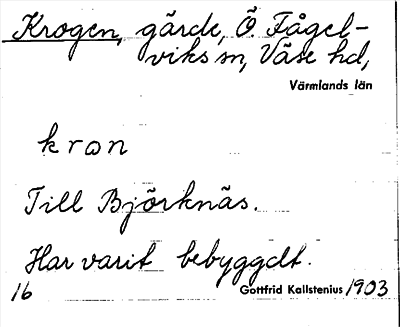 Krogen, gärde, Ö. Fågel-
viks sn, Väse hd,
Värmlands län
krɷn
Till Björknäs.
Har varit bebyggdt.
16 Gottfrid Kallstenius 1903